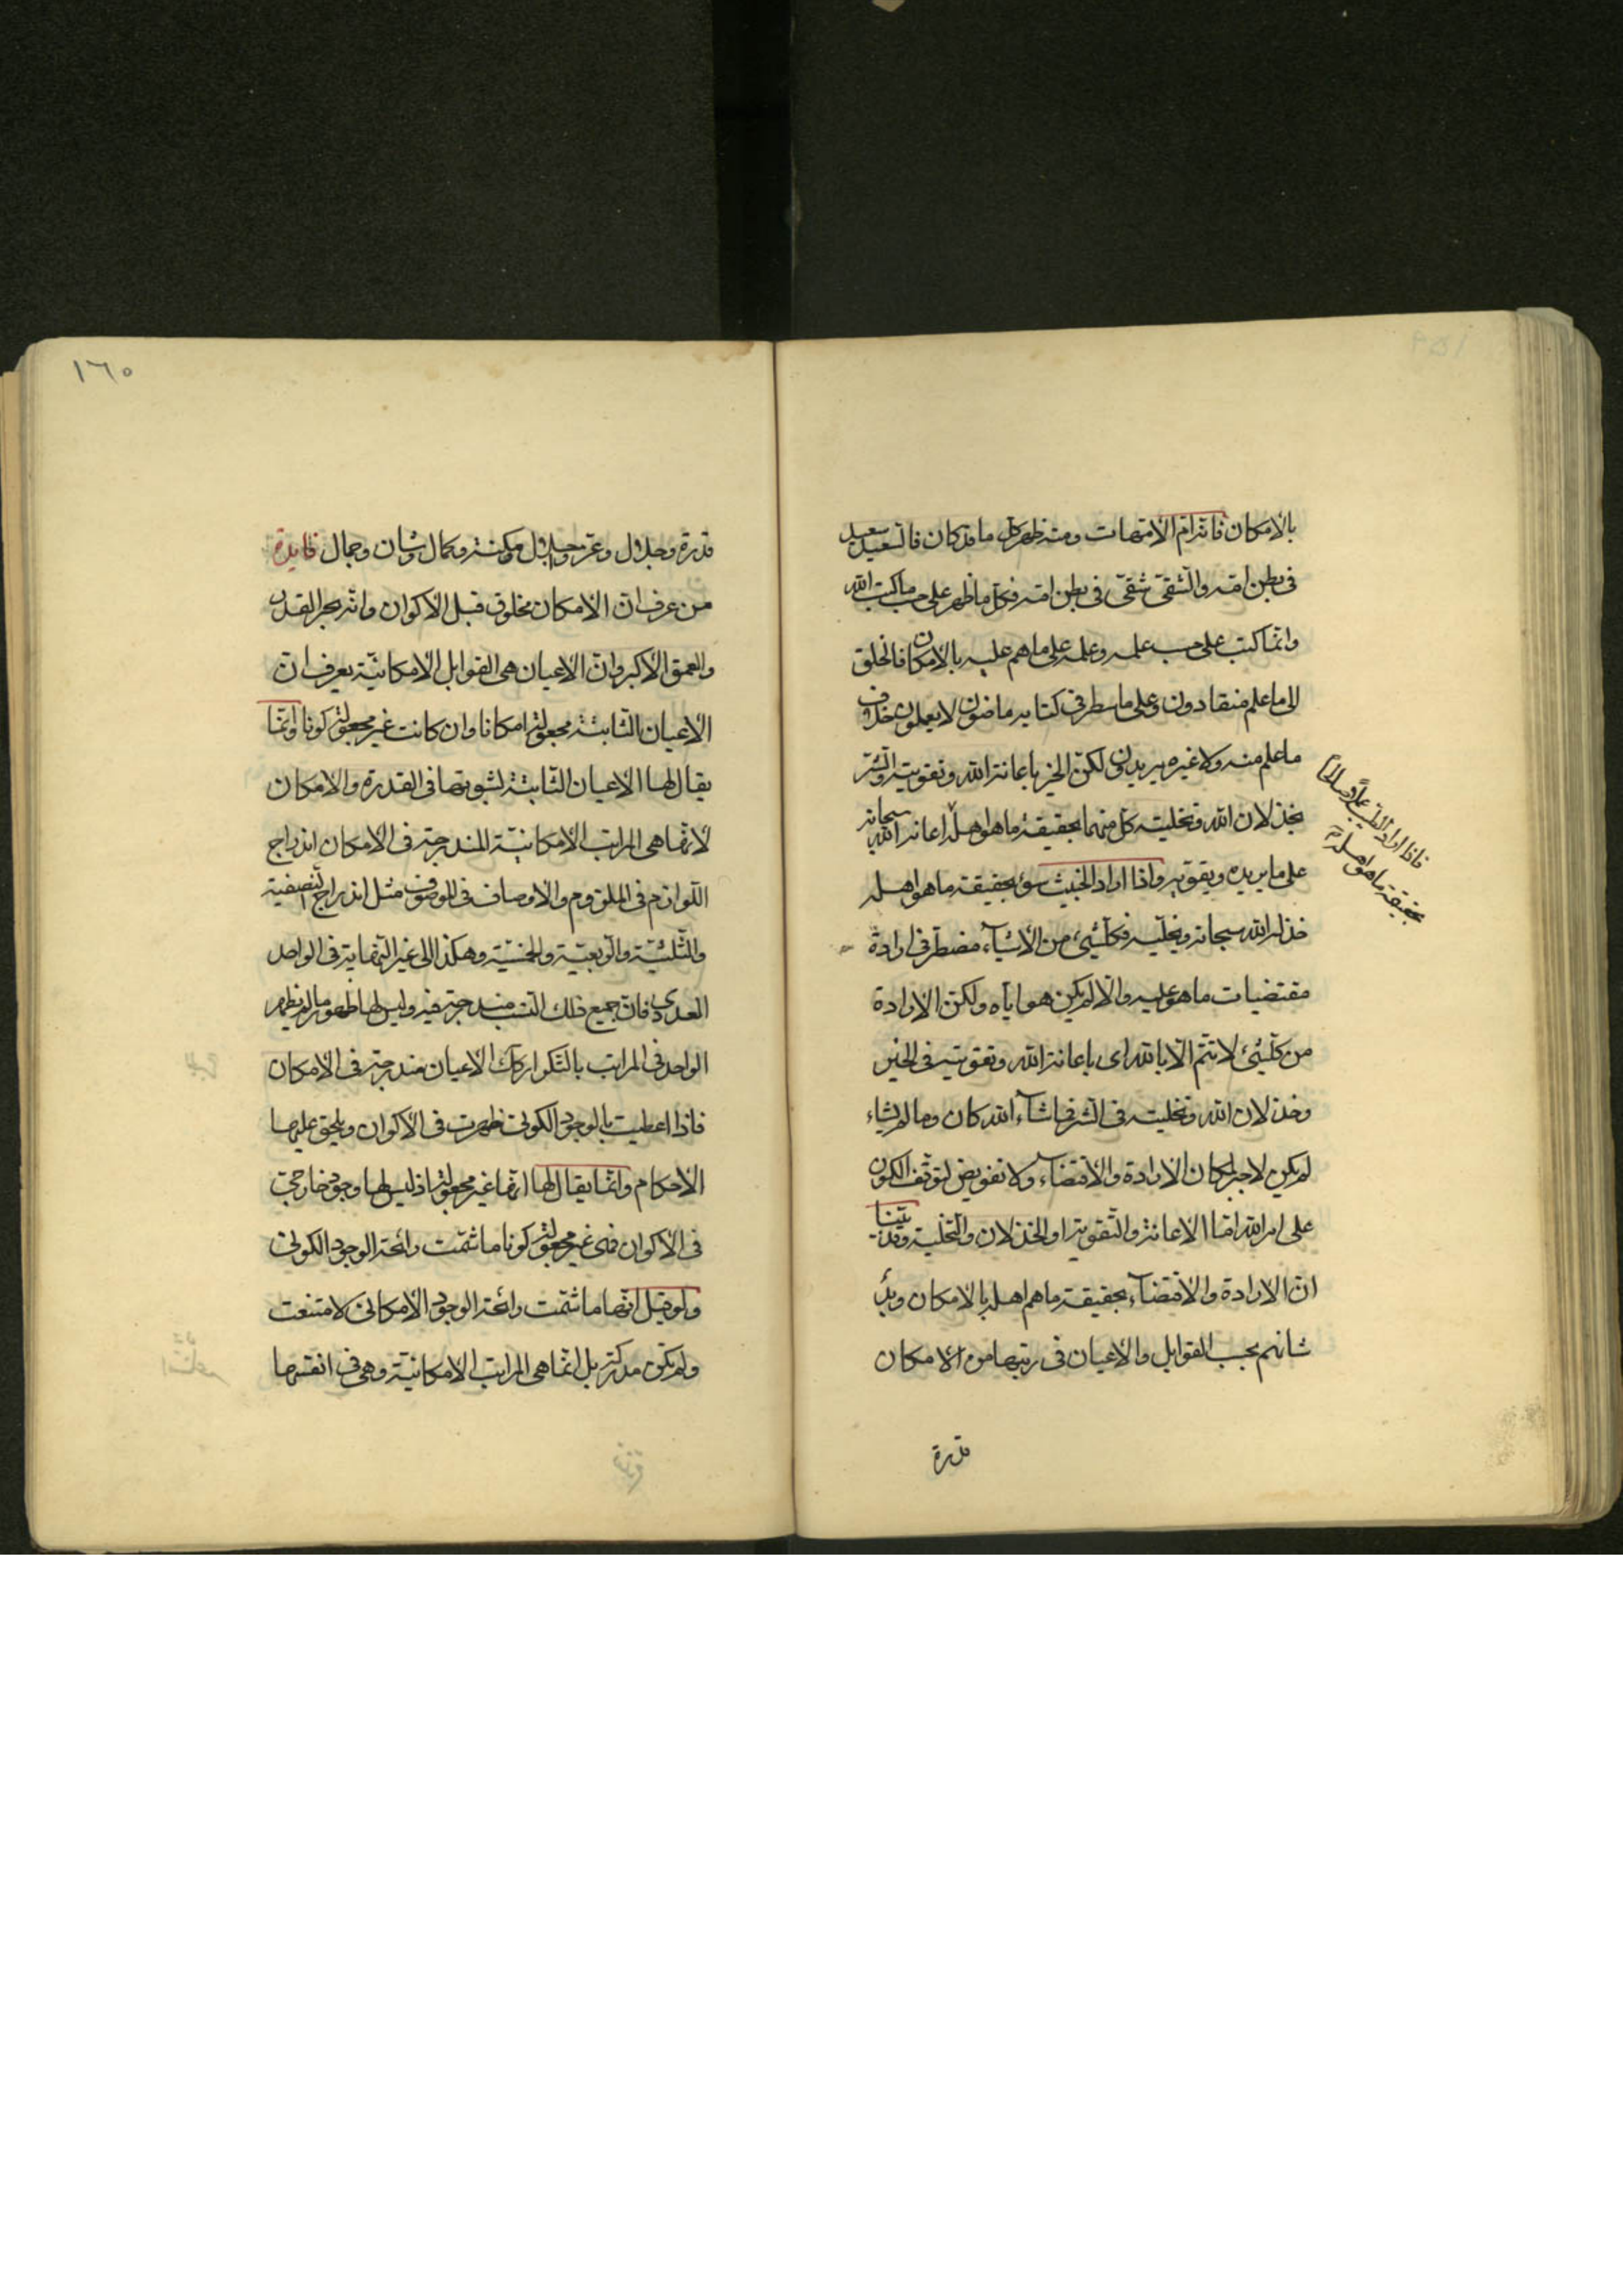 ١٥٩
بالامكان فانه ام الامتهات ومنه ظهر كل ما قد كان فالسعيد سعيد
فى بطن امه والشقى شقى فى بطن امه فكل ما ظهر على حسب ما كتب الله
وانما كتب على حسب علمه وعلمه على ما هم عليه بالامكان فالخلق
الى ما علم منقادون وعلى ما سطر فى كتابه ماضون لا يعملون خلاف
ما علم منه ولا غيره يريدون لكن الخير باعانة الله وتقويته والشر
بخذلان الله وتخليته كل منهما بحقيقة ما هو اهله اعانه الله سبحانه
على ما يريده ويقويه واذا اراد الخبيث سوء بحقيقة ما هو اهله
خذله الله سبحانه ويخليه فكلشئ من الاشياء مضطر فى ارادة
مقتضيات ما هو عليه والا لم يكن هو اياه ولكن الارادة
من كلشئ لا تتم الا بالله اى باعانة الله وتقويته فى الخير
وخذلان الله وتخليته فى الشر فما شاء الله كان وما لم يشاء
لم يكن لاجبر لمكان الارادة والاقتضاء ولا تفويض لتوقف الكون
على امر الله اما الاعانة والتقوية او الخذلان والتخلية وقد بينا
ان الارادة والاقتضاء بحقيقة ما هم اهله بالامكان
شانهم بحسب القوابل والاعيان فى رتبتها من الامكان
قدرة
فاذا اراد الطيب عملا صالحا
بحقيقة ما هو اهله
١٦٠
قدرة وجلال وعز وجلال ومكنة وكمال وشان وجمال فايدة
من عرف ان الامكان مخلوق قبل الاكوان وانه بحر القدر
والعمق الاكبر وان الاعيان هى القوابل الامكانية يعرف ان
الاعيان الثابتة مجعولة امكانا وان كانت غير مجعولة كونا وانما
يقال لها الاعيان الثابتة لثبوتها فى القدرة والامكان
لانها هى المراتب الامكانية المندرجة فى الامكان اندراج
اللوازم فى الملزوم والاوصاف فى الموصوف مثل اندراج النصفية
والثلثية والربعية والخمسية وهكذا الى غير النهاية فى الواحد
العددى فان جميع تلك النسب مندرجة فيه وليس لها ظهور ما لم يظهر
الواحد فى المراتب بالتكرار كك الاعيان مندرجة فى الامكان
فاذا اعطيت بالوجود الكونى ظهرت فى الاكوان ويلحق عليها
الاحكام وانما يقال لها انها غير مجعولة اذ ليس لها وجود خارجى
فى الاكوان فهى غير مجعولة كونا ما شمت رائحة الوجود الكونى
ولو قيل انها ما شمت رائحة الوجود الامكانى لامتنعت
ولم تكن مدركة بل انما هى المراتب الامكانية وهى فى انفسها